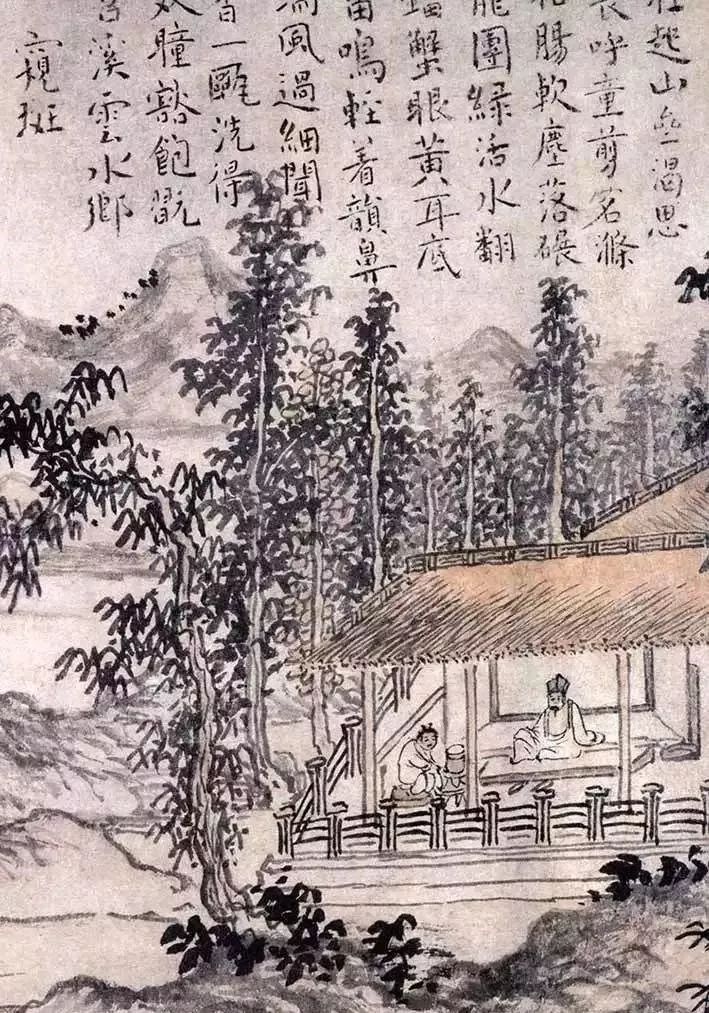 起山齋渴思
長呼童剪茗滌
枯腸軟塵落碾
龍團綠活水翻
鐺蟹眼黃耳底
雷鳴輕着韻鼻
端風過細聞
香一甌洗得
雙瞳豁飽翫
苕溪雲水鄉
窺斑